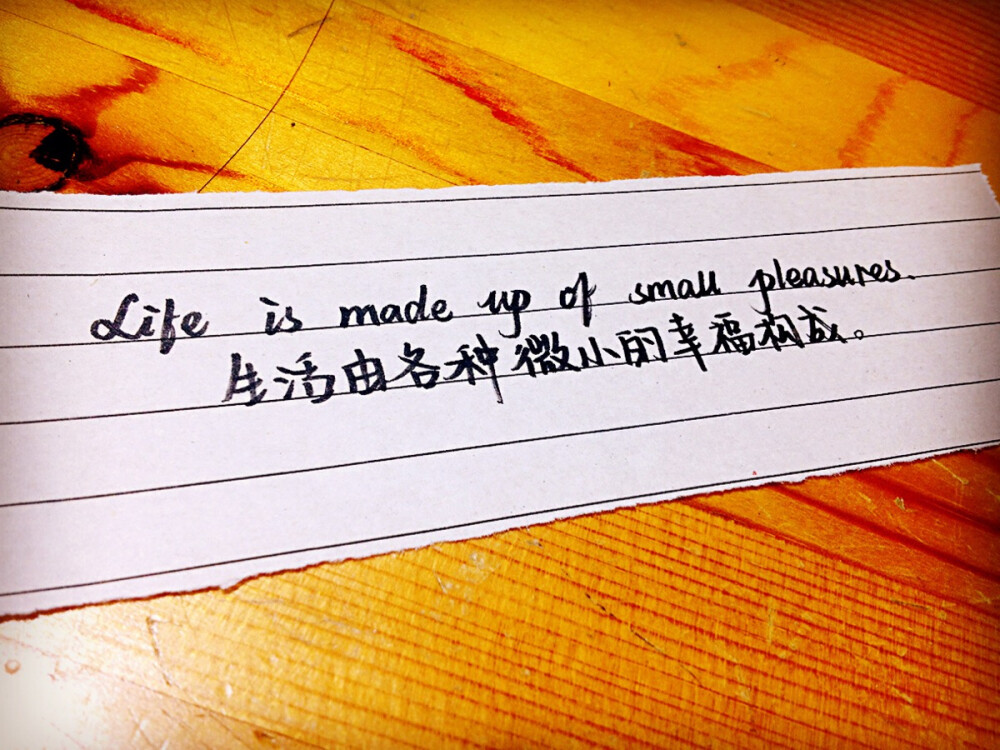 Life is made up of small pleasures.
生活由各种微小的幸福构成。